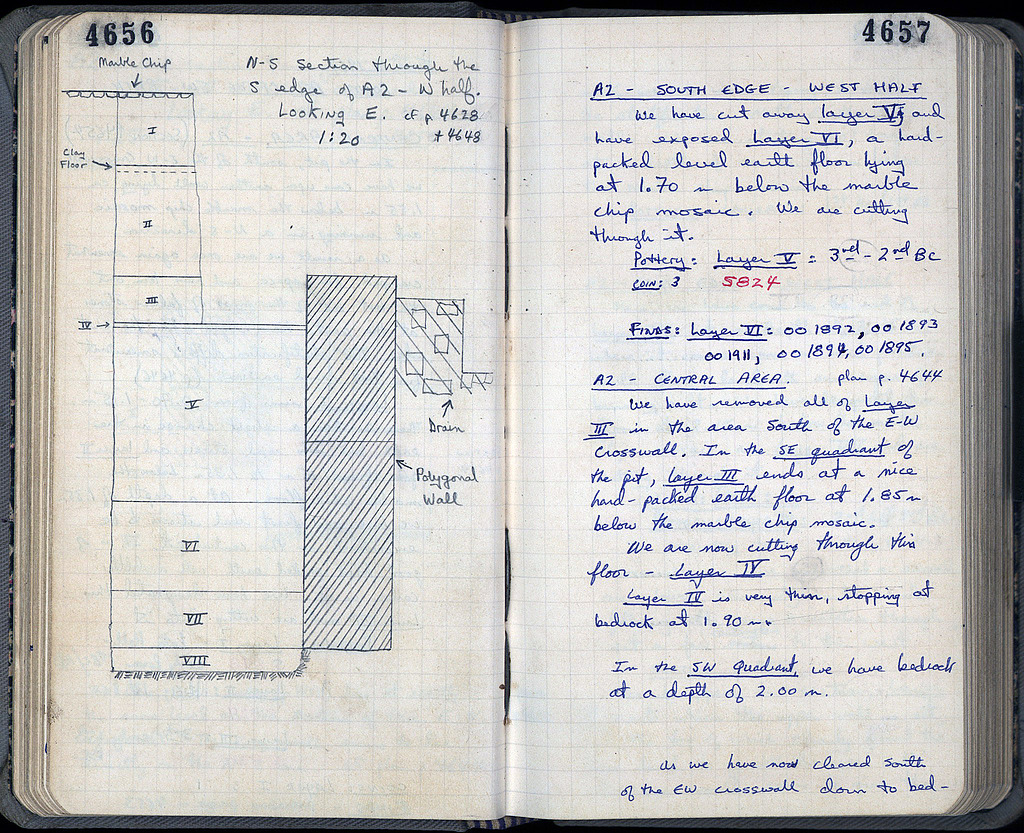 4656
Marble Chip
N-S section through the
S edge of A2 - W half.
Looking E. cf p 4628
1:20 + 4648
I
Clay
Floor
II
III
IV
V
Drain
Polygonal
Wall
VI
VII
VIII
4657
A2 - SOUTH EDGE - WEST HALF
We have cut away layer V and
have exposed Layer VI, a hard-
packed level earth floor lying
at 1.70 m below the marble
chip mosaic. We are cutting
through it.
Pottery: Layer V = 3rd - 2nd BC
COIN: 3 5824
FINDS: Layer VI: 00 1892, 00 1893
00 1911, 00 1894, 00 1895.
A2 - CENTRAL AREA. plan p. 4644
We have removed all of Layer
III in the area South of the E-W
Crosswall. In the SE quadrant of
the pit, layer III ends at a nice
hard-packed earth floor at 1.85 m
below the marble chip mosaic.
We are now cutting through this
floor - Layer IV
Layer IV is very thin, stopping at
bedrock at 1.90 m.
In the SW Quadrant, we have bedrock
at a depth of 2.00 m.
As we have now cleared South
of the EW crosswall down to bed-